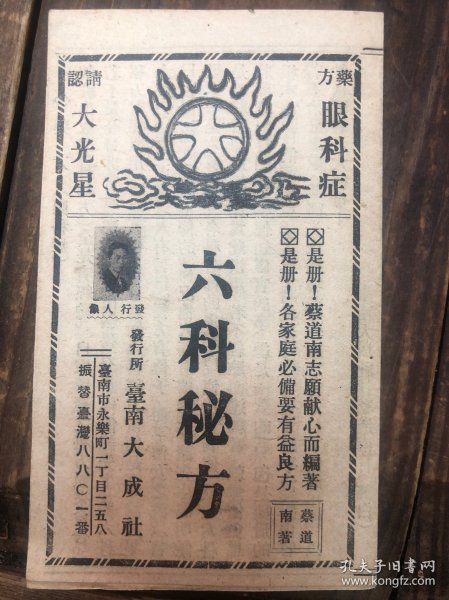 藥方
眼科症
請認
大光星
是册！蔡道南志願献心而編著
是册！各家庭必備要有益良方
蔡道南著
六科秘方
發行人像
發行所 臺南大成社
臺南市永樂町一丁目二五八
振替臺灣八八〇一番
孔夫子旧书网
www.kongfz.com